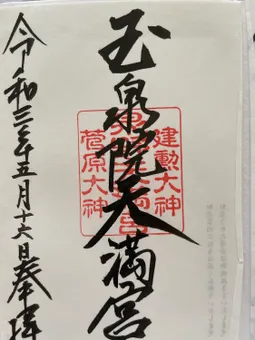 建勲大神
玉泉院天満宮
菅原大神
令和三年五月十六日奉拝